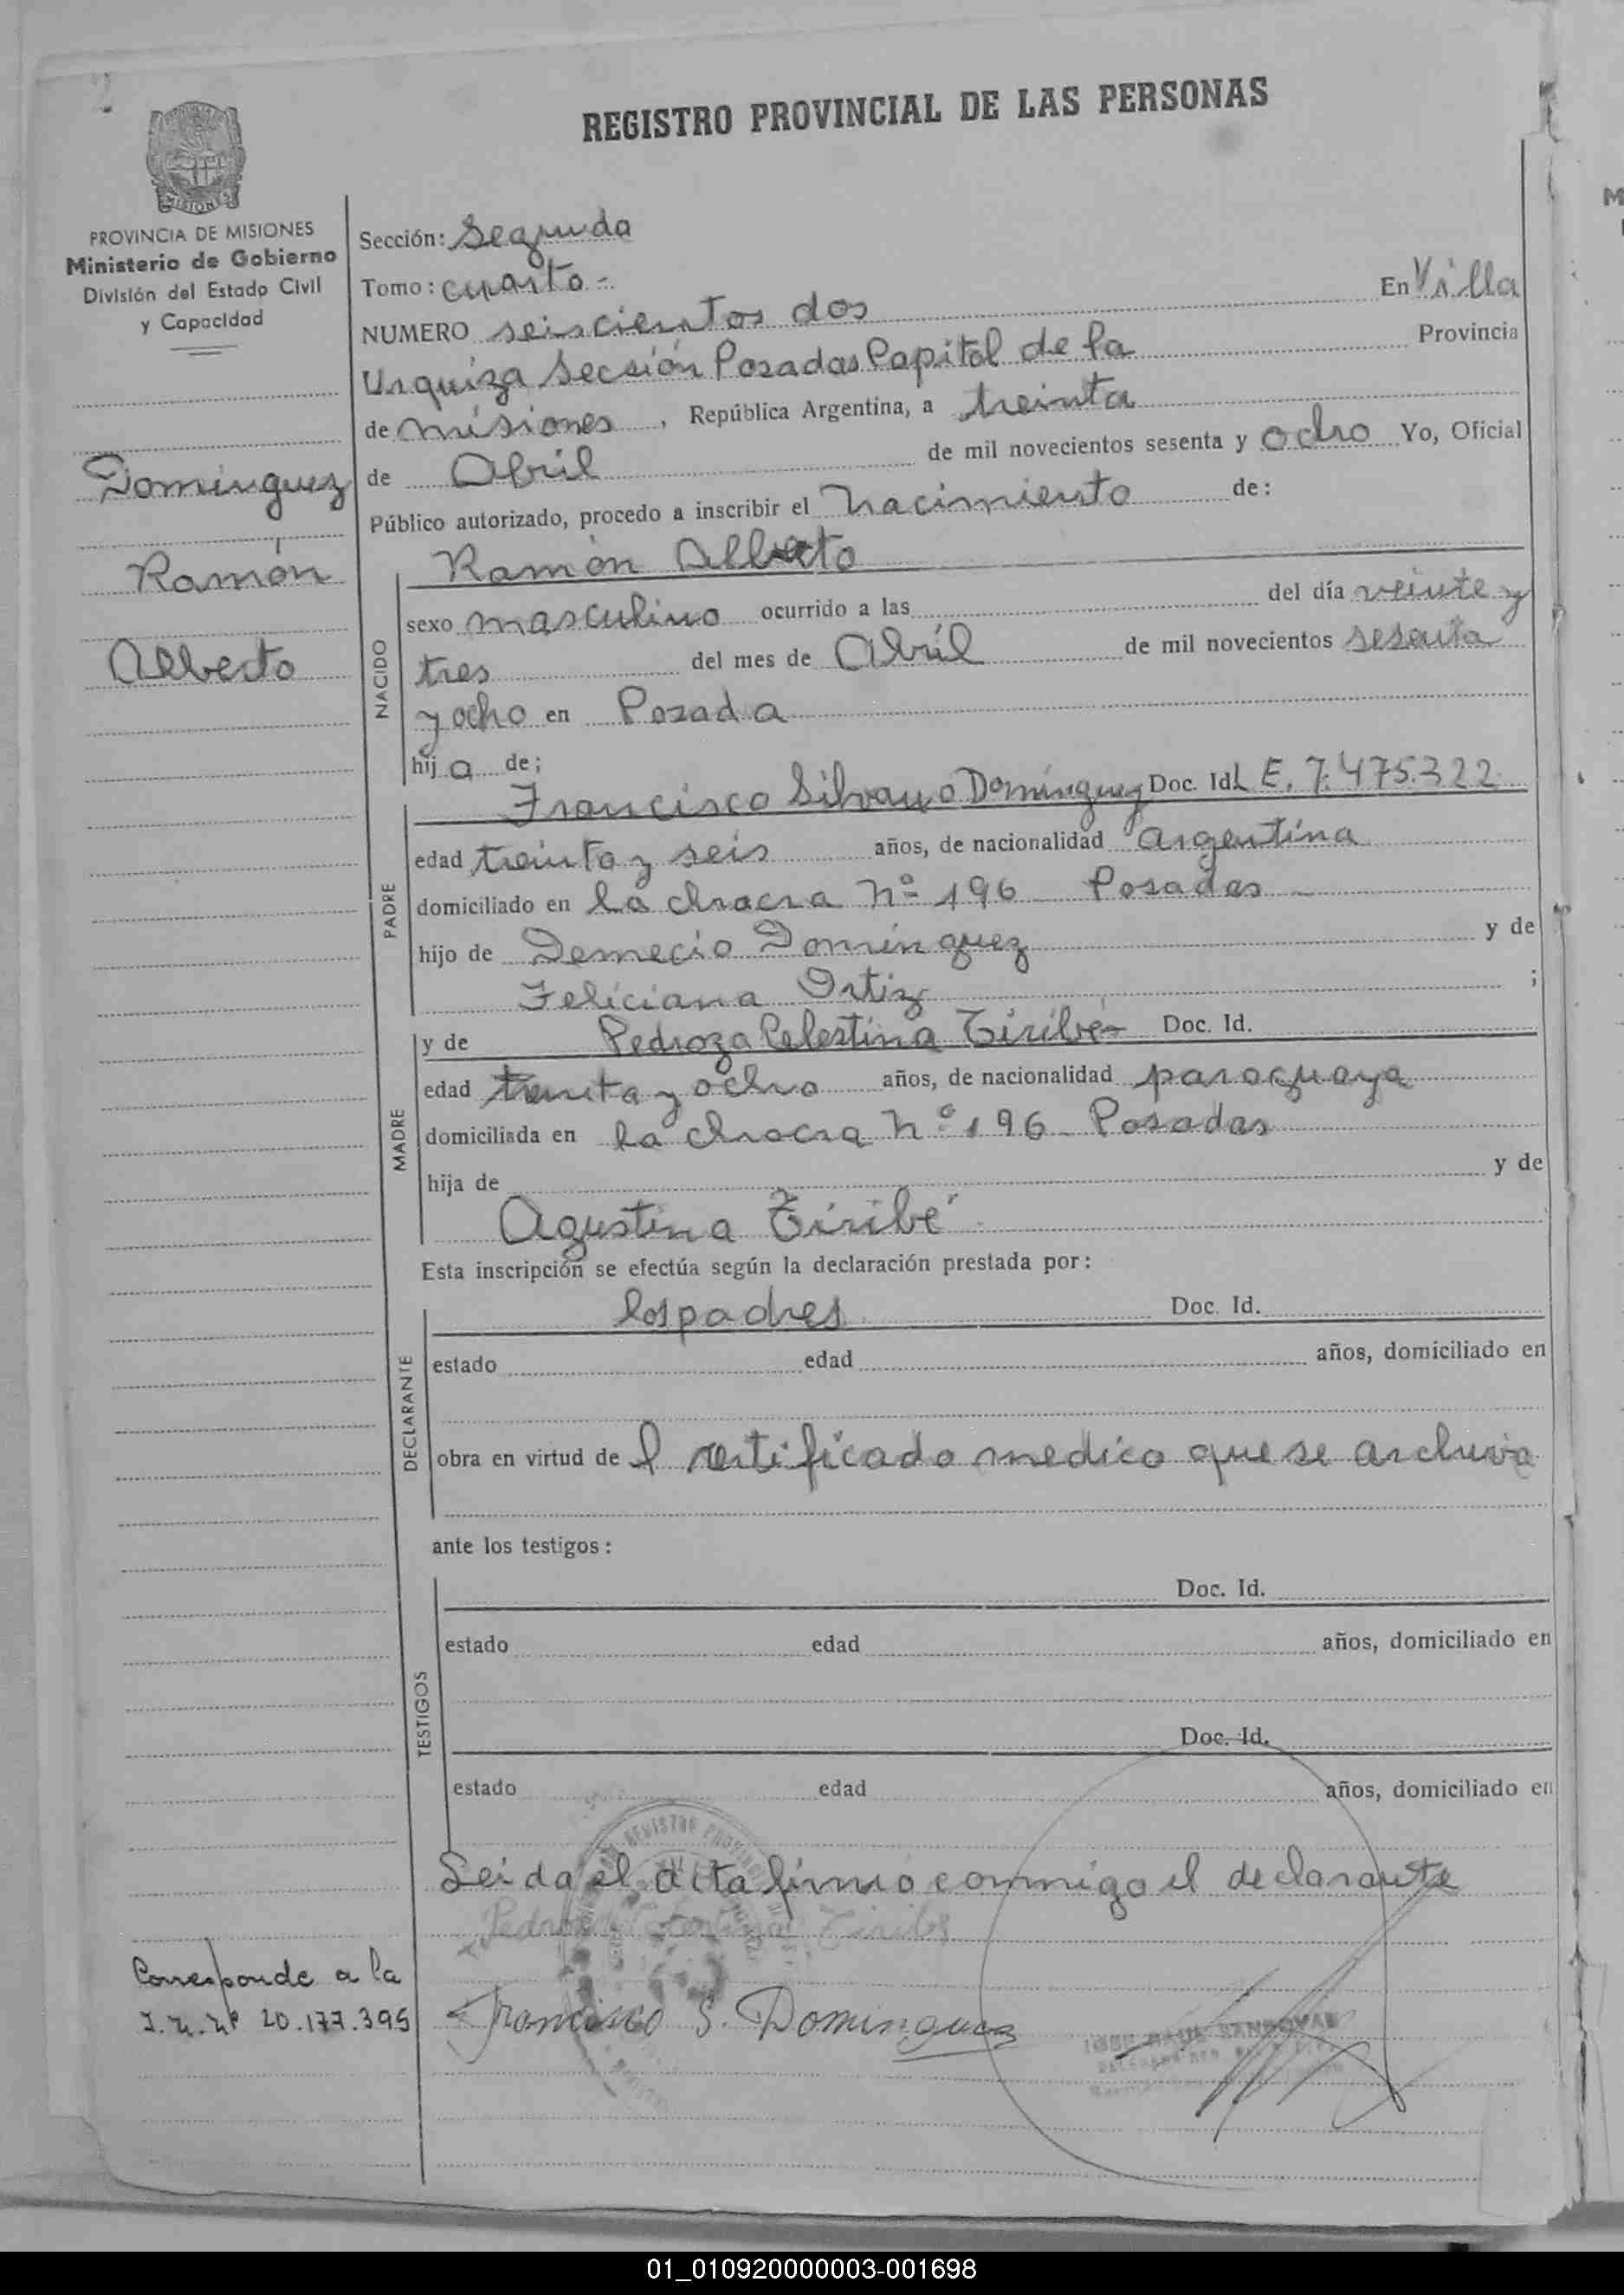 REGISTRO PROVINCIAL DE LAS PERSONAS
MISIONES
PROVINCIA DE MISIONES
Ministerio de Gobierno
División del Estado Civil
y Capacidad
Dominguez
Ramón
Alberto
Sección: Segunda
Tomo: cuarto -
NUMERO seiscientos dos En Villa
Urquiza Sección Posadas Capital de la Provincia
de misiones, República Argentina, a treinta
de Abril de mil novecientos sesenta y ocho Yo, Oficial
Público autorizado, procedo a inscribir el nacimiento de:
NACIDO
Ramón Alberto
sexo masculino ocurrido a las del día veinte y
tres del mes de Abril de mil novecientos sesenta
y ocho en Posada
hij a de;
PADRE
Francisco Silvano Dominguez Doc. Id. L E. 7.475.322
edad treinta y seis años, de nacionalidad argentina
domiciliado en la chacra Nº 196 - Posadas -
hijo de Demecio Dominguez y de
Feliciana Ortiz ;
MADRE
y de Pedroza Celestina Tiribé - Doc. Id.
edad treinta y ocho años, de nacionalidad paraguaya
domiciliada en la chacra Nº 196 - Posadas
hija de y de
Agustina Tiribé
Esta inscripción se efectúa según la declaración prestada por:
DECLARANTE
los padres Doc. Id.
estado edad años, domiciliado en
obra en virtud de l certificado medico que se archiva
ante los testigos:
TESTIGOS
Doc. Id.
estado edad años, domiciliado en
Doc. Id.
estado edad años, domiciliado en
Leida el acta firmo conmigo el declarante
Tiribe
Corresponde a la
20.177.395
Francisco S. Dominguez
01_010920000003-001698